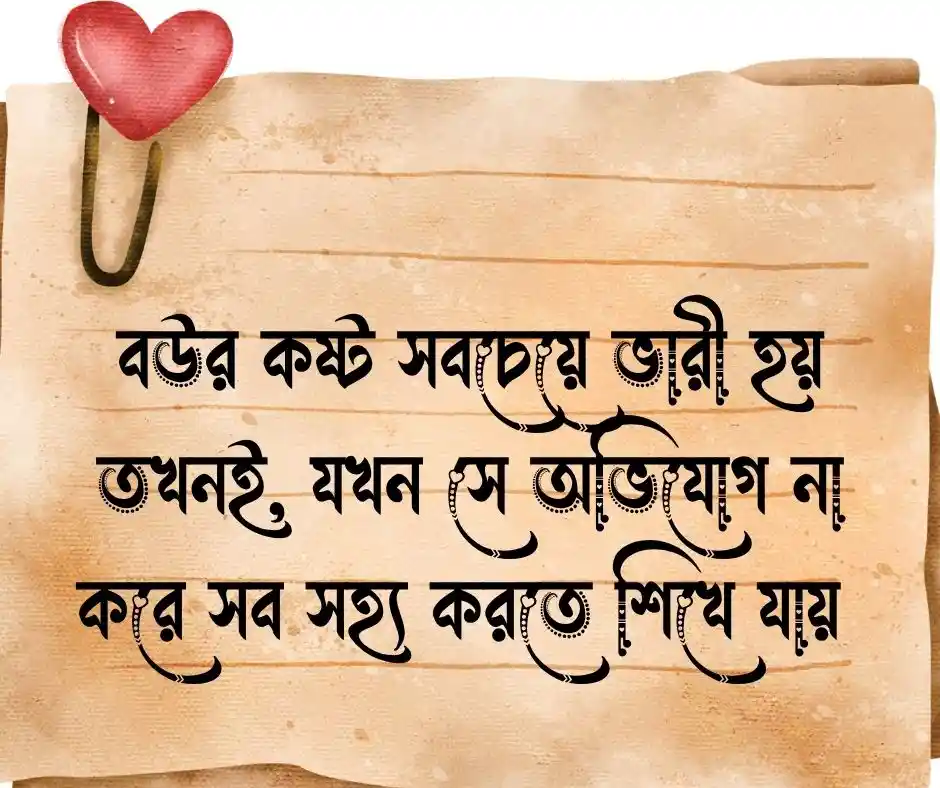 বউর কষ্ট সবচেয়ে ভারী হয়
তখনই, যখন সে অভিযোগ না
করে সব সহ্য করতে শিখে যায়